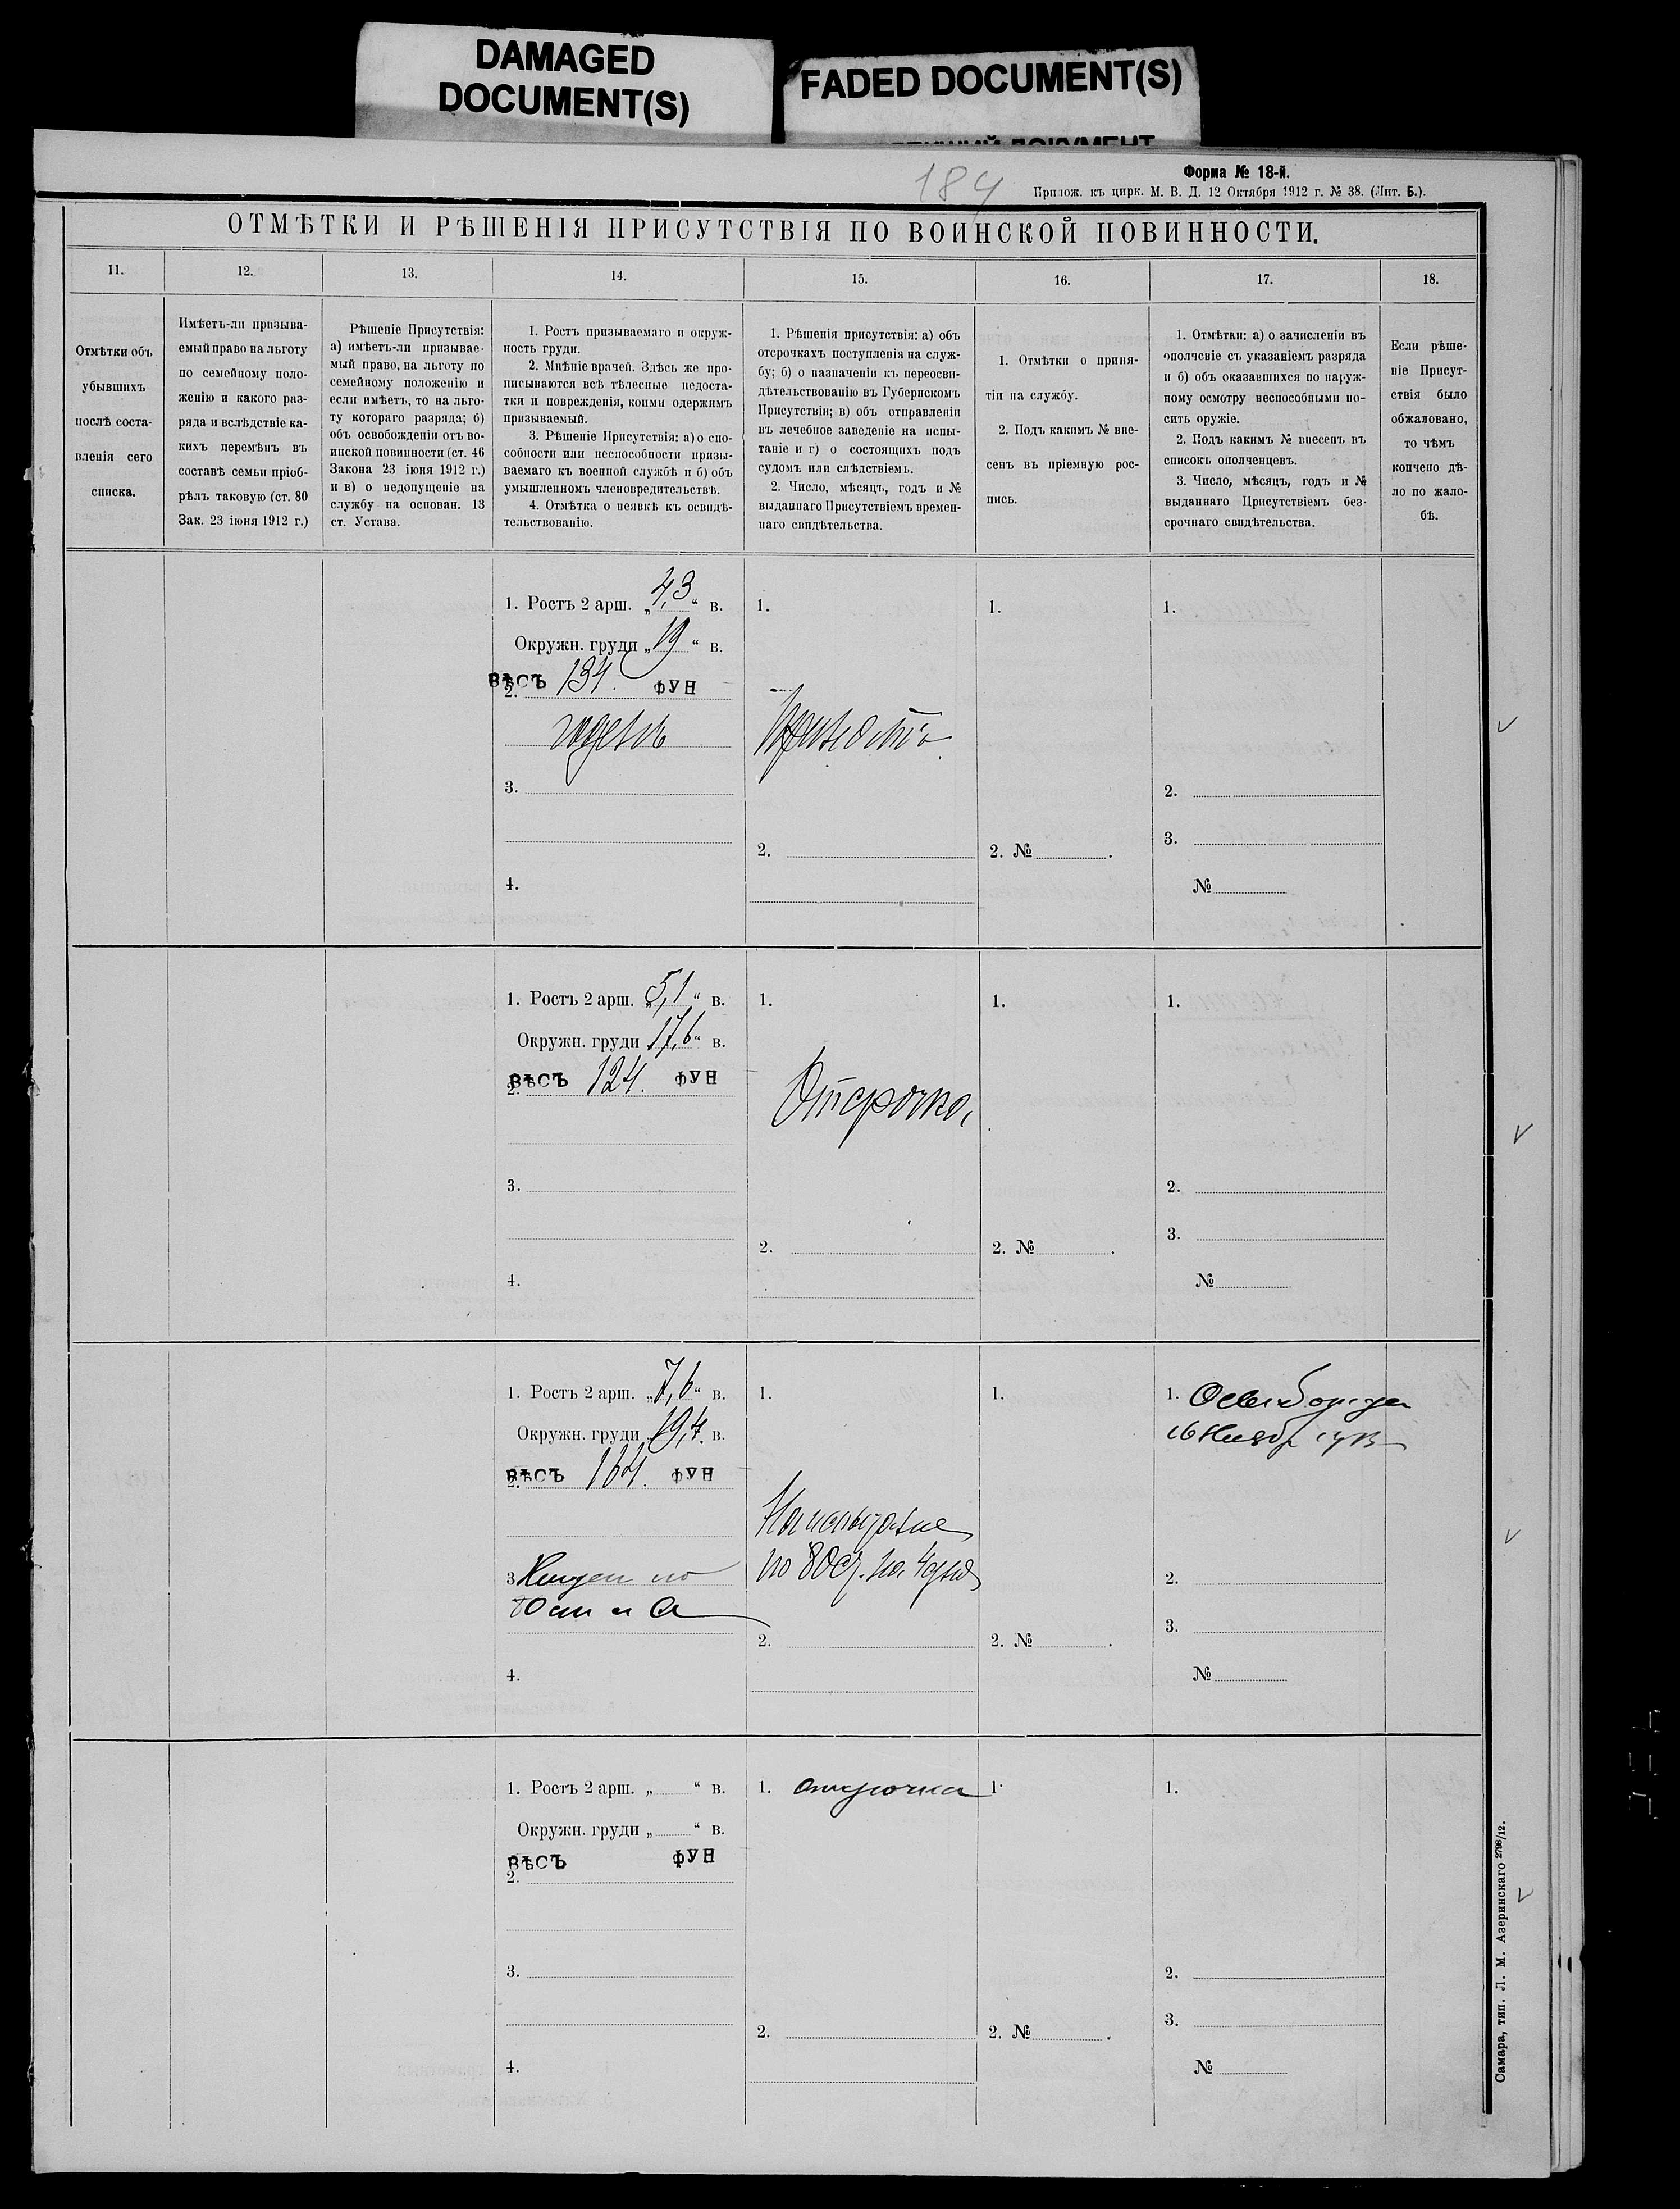 DAMAGED
DOCUMENT(S)
FADED DOCUMENT(S)
184
Форма № 18-й.
Прилож. къ цирк. М. В. Д. 12 Октября 1912 г. № 38. (Лит. Б.).
ОТМѢТКИ И РѢШЕНІЯ ПРИСУТСТВІЯ ПО ВОИНСКОЙ ПОВИННОСТИ.
11.
12.
13.
14.
15.
16.
17.
18.
Отмѣтки объ
убывшихъ
послѣ соста-
вленія сего
списка.
Имѣетъ-ли призыва-
емый право на льготу
по семейному поло-
женію и какого раз-
ряда и вслѣдствіе ка-
кихъ перемѣнъ въ
составѣ семьи пріоб-
рѣлъ таковую (ст. 80
Зак. 23 іюня 1912 г.)
Рѣшеніе Присутствія:
а) имѣетъ-ли призывае-
мый право, на льготу по
семейному положенію и
если имѣетъ, то на льго-
ту котораго разряда; б)
объ освобожденіи отъ во-
инской повинности (ст. 46
Закона 23 іюня 1912 г.)
и в) о недопущеніе на
службу на основан. 13
ст. Устава.
1. Ростъ призываемаго и окруж-
ность груди.
2. Мнѣніе врачей. Здѣсь же про-
писываются всѣ тѣлесные недоста-
тки и поврежденія, коими одержимъ
призываемый.
3. Рѣшеніе Присутствія: а) о спо-
собности или неспособности призы-
ваемаго къ военной службѣ и б) объ
умышленномъ членовредительствѣ.
4. Отмѣтка о неявкѣ къ освидѣ-
тельствованію.
1. Рѣшенія присутствія: а) объ
отсрочкахъ поступленія на служ-
бу; б) о назначеніи къ переосви-
дѣтельствованію въ Губернскомъ
Присутствіи; в) объ отправленіи
въ лечебное заведеніе на испы-
таніе и г) о состоящихъ подъ
судомъ или слѣдствіемъ.
2. Число, мѣсяцъ, годъ и №
выданнаго Присутствіемъ времен-
наго свидѣтельства.
1. Отмѣтки о приня-
тіи на службу.
2. Подъ какимъ № вне-
сенъ въ пріемную рос-
пись.
1. Отмѣтки: а) о зачисленіи въ
ополченіе съ указаніемъ разряда
и б) объ оказавшихся по наруж-
ному осмотру неспособными но-
сить оружіе.
2. Подъ какимъ № внесенъ въ
списокъ ополченцевъ.
3. Число, мѣсяцъ, годъ и №
выданнаго Присутствіемъ без-
срочнаго свидѣтельства.
Если рѣше-
ніе Присут-
ствія было
обжаловано,
то чѣмъ
кончено дѣ-
ло по жало-
бѣ.
1. Ростъ 2 арш. „4,3“ в.
Окружн. груди „19“ в.
ВѢСЪ 134. ФУН
2.
годенъ
3.
4.
1.
2.
1.
2. №
1.
2.
3.
№
1. Ростъ 2 арш. „5,1“ в.
Окружн. груди 17,6“ в.
ВѢСЪ 124. ФУН
2.
3.
4.
1.
Отсрочка,
2.
1.
2. №
1.
2.
3.
№
1. Ростъ 2 арш. „7,6“ в.
Окружн. груди „19,4. в.
ВѢСЪ 164. ФУН
2.
3
4.
1.
На испытаніе
по 80 ст. на 4 дня
2.
1.
2. №
1. Освобожден
16 Ноябр 1913
2.
3.
№
1. Ростъ 2 арш. „ “ в.
Окружн. груди „ “ в.
ВѢСЪ ФУН
2.
3.
4.
1. отсрочка
2.
1.
2. №
1.
2.
3.
№
Самара, тип. Л. М. Азеринскаго 2798/12.